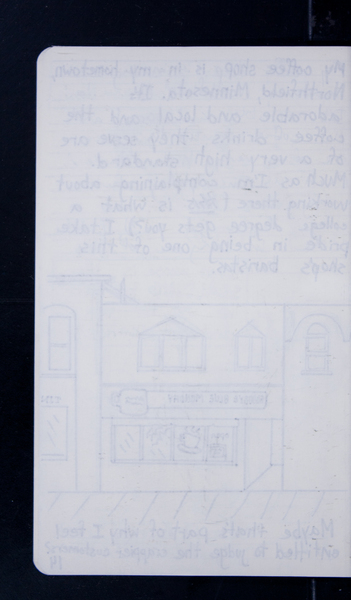 My coffee shop is in my hometown,
Northfield, Minnesota. It's
adorable and local and the
coffee drinks they serve are
of a very high standard.
Much as I'm complaining about
working there (this is what a
college degree gets you?) I take
pride in being one of this
shop's baristas.
Maybe that's part of why I feel
entitled to judge the crappier customers?